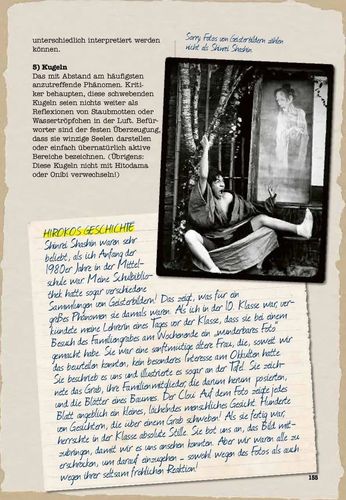 unterschiedlich interpretiert werden
können.
5) Kugeln
Das mit Abstand am häufigsten
anzutreffende Phänomen. Kriti-
ker behaupten, diese schwebenden
Kugeln seien nichts weiter als
Reflexionen von Staubmotten oder
Wassertröpfchen in der Luft. Befür-
worter sind der festen Überzeugung,
dass sie winzige Seelen darstellen
oder einfach übernatürlich aktive
Bereiche bezeichnen. (Übrigens:
Diese Kugeln nicht mit Hitodama
oder Onibi verwechseln!)
Sorry, Fotos von Geisterbildern zählen
nicht als Shinrei Shashin
HIROKOS GESCHICHTE
Shinrei Shashin waren sehr
beliebt, als ich Anfang der
1980er Jahre in der Mittel-
schule war. Meine Schulbiblio-
thek hatte sogar verschiedene
Sammlungen von Geisterbildern! Das zeigt, was für ein
großes Phänomen sie damals waren. Als ich in der 10. Klasse war, ver-
kündete meine Lehrerin eines Tages vor der Klasse, dass sie bei einem
Besuch des Familiengrabes am Wochenende ein „wunderbares Foto"
gemacht habe. Sie war eine sanftmütige ältere Frau, die, soweit wir
das beurteilen konnten, kein besonderes Interesse am Okkulten hatte.
Sie beschrieb es uns und illustrierte es sogar an der Tafel. Sie zeich-
nete das Grab, ihre Familienmitglieder, die darum herum posierten,
und die Blätter eines Baumes. Der Clou: Auf dem Foto zeigte jedes
Blatt angeblich ein kleines, lächelndes menschliches Gesicht. Hunderte
von Gesichtern, die über einem Grab schweben! Als sie fertig war,
herrschte in der Klasse absolute Stille. Sie bot uns an, das Bild mit-
zubringen, damit wir es uns ansehen konnten. Aber wir waren alle zu
erschrocken, um darauf einzugehen – sowohl wegen des Fotos als auch
wegen ihrer seltsam fröhlichen Reaktion!
155